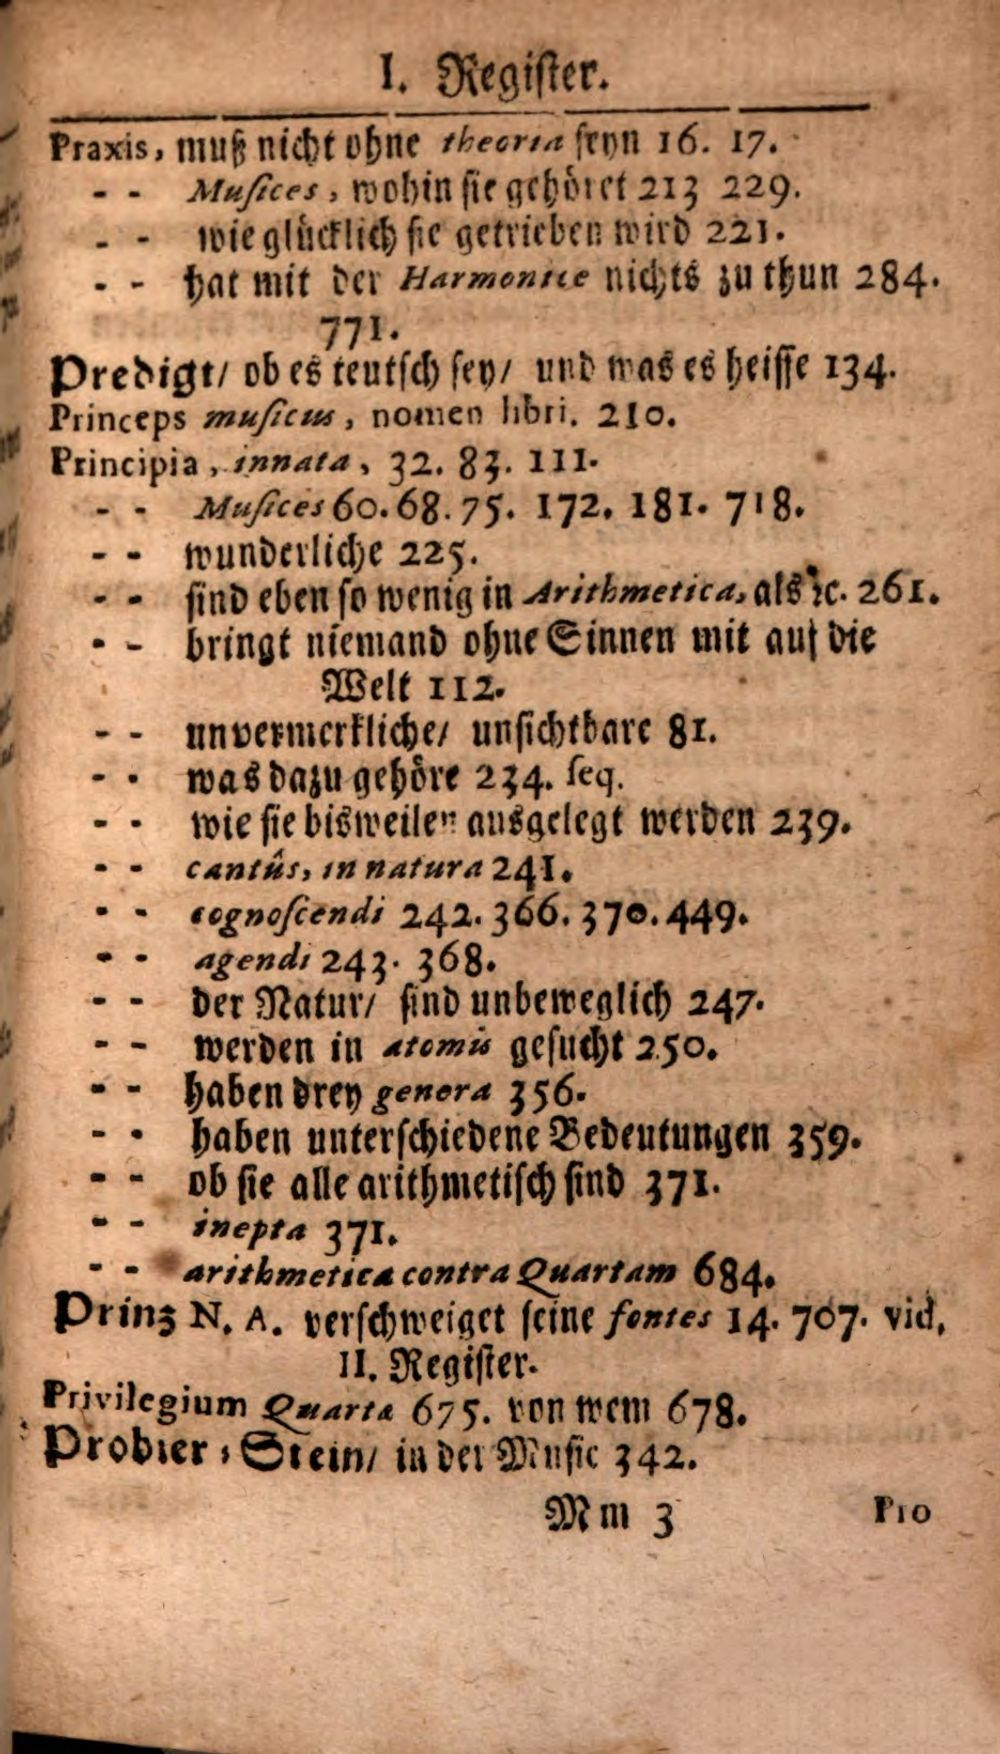 I. Register.
Praxis, muß nicht ohne theoria seyn 16. 17.
- - Musices, wohin sie gehöret 213 229.
- - wie glücklich sie getrieben wird 221.
- - hat mit der Harmonie nichts zu thun 284.
771.
Predigt/ ob es teutsch sey/ und was es heisse 134.
Princeps musicus, nomen libri. 210.
Principia, innata, 32. 83. 111.
- - Musices 60. 68. 75. 172. 181. 718.
- - wunderliche 225.
- - sind eben so wenig in Arithmetica, als ꝛc. 261.
- - bringt niemand ohne Sinnen mit auf die
Welt 112.
- - unvermerkliche/ unsichtbare 81.
- - was dazu gehöre 234. seq.
- - wie sie bisweilen ausgelegt werden 239.
- - cantûs, in natura 241.
- - cognoscendi 242. 366. 370. 449.
- - agendi 243. 368.
- - der Natur/ sind unbeweglich 247.
- - werden in atomis gesucht 250.
- - haben drey genera 356.
- - haben unterschiedene Bedeutungen 359.
- - ob sie alle arithmetisch sind 371.
- - inepta 371.
- - arithmetica contra Quartam 684.
Prinz N. A. verschweiget seine fontes 14. 707. vid.
II. Register.
Privilegium Quartæ 675. von wem 678.
Probier-Stein/ in der Music 342.
Mm 3 Pro